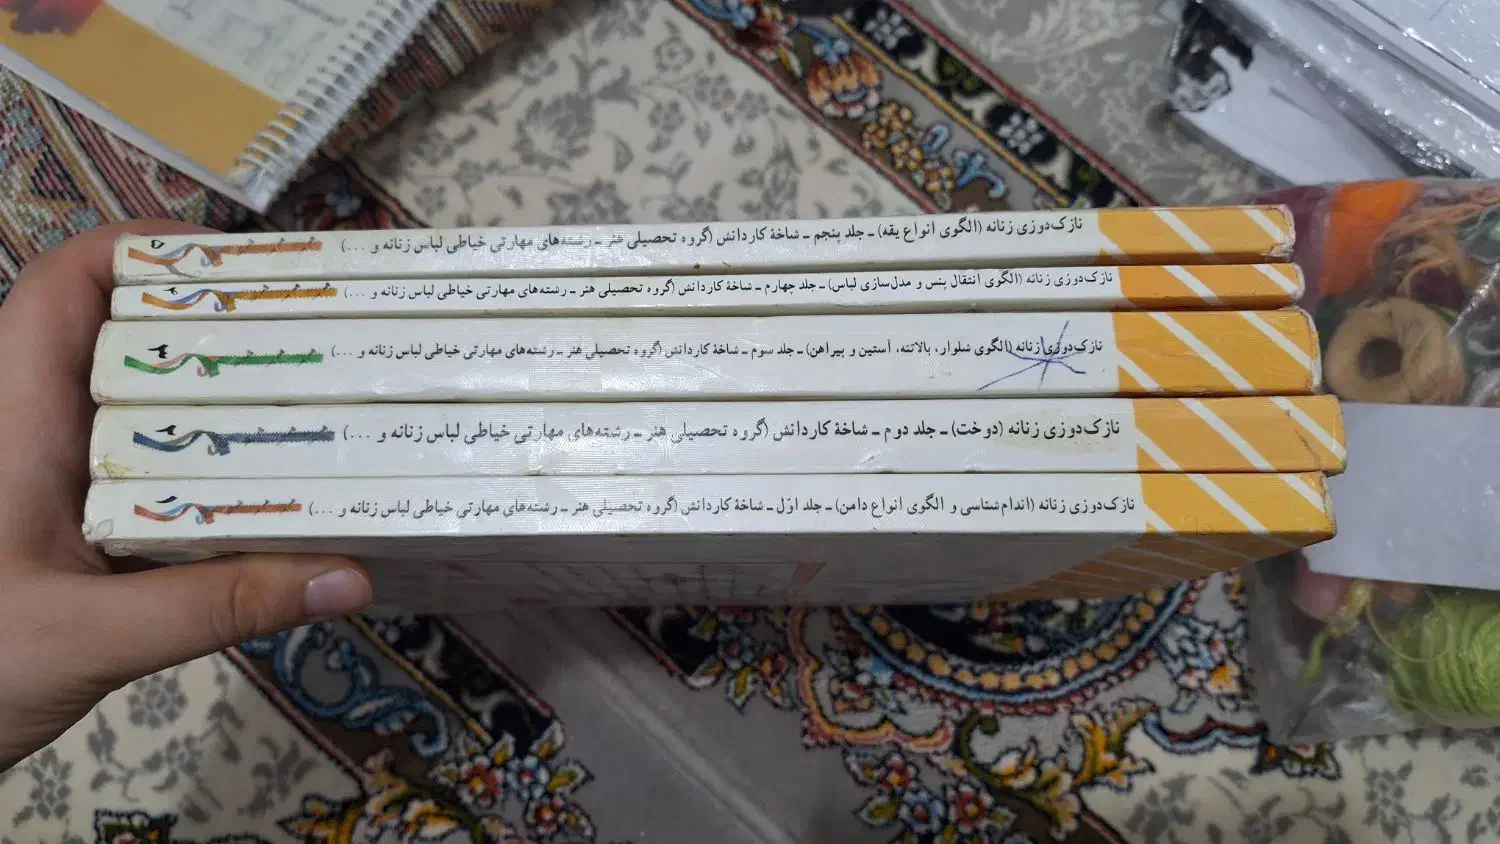 نازک‌دوزی زنانه (الگوی انواع یقه) ـ جلد پنجم ـ شاخۀ کاردانش (گروه تحصیلی هنر ـ رشته‌های مهارتی خیاطی لباس زنانه و ...) ۵
نازک‌دوزی زنانه (الگوی انتقال پنس و مدل‌سازی لباس) ـ جلد چهارم ـ شاخۀ کاردانش (گروه تحصیلی هنر ـ رشته‌های مهارتی خیاطی لباس زنانه و ...) ۴
نازک‌دوزی زنانه (الگوی شلوار، بالاتنه، آستین و پیراهن) ـ جلد سوم ـ شاخۀ کاردانش (گروه تحصیلی هنر ـ رشته‌های مهارتی خیاطی لباس زنانه و ...) ۳
نازک‌دوزی زنانه (دوخت) ـ جلد دوم ـ شاخۀ کاردانش (گروه تحصیلی هنر ـ رشته‌های مهارتی خیاطی لباس زنانه و ...) ۲
نازک‌دوزی زنانه (اندام‌شناسی و الگوی انواع دامن) ـ جلد اوّل ـ شاخۀ کاردانش (گروه تحصیلی هنر ـ رشته‌های مهارتی خیاطی لباس زنانه و ...) ۱